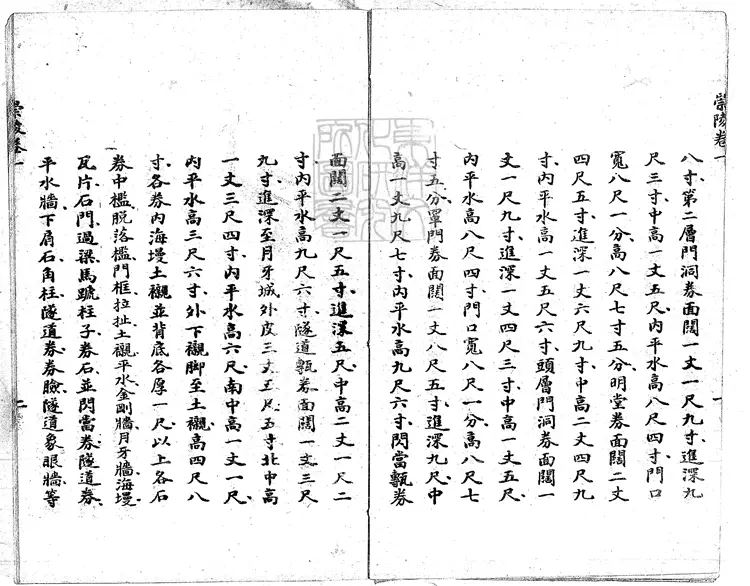 崇陵卷一
八寸第二層門洞券面闊一丈一尺九寸進深九
尺三寸中高一丈五尺內平水高八尺四寸門口
寬八尺一分高八尺七寸五分明堂券面闊二丈
四尺五寸進深一丈六尺九寸中高二丈四尺九
寸內平水高一丈五尺六寸頭層門洞券面闊一
丈一尺九寸進深一丈四尺三寸中高一丈五尺
內平水高八尺四寸門口寬八尺一分高八尺七
寸五分罩門券面闊一丈八尺五寸進深九尺中
高一丈九尺七寸內平水高九尺六寸閃當甎券
一
面闊二丈一尺五寸進深五尺中高二丈一尺二
寸內平水高九尺六寸隧道甎券面闊一丈三尺
九寸進深至月牙城外皮三丈五尺五寸北中高
一丈三尺四寸內平水高六尺南中高一丈一尺
內平水高三尺六寸外下襯脚至土襯高四尺八
寸各券內海墁土襯並背底各厚一尺以上各石
券中檻脫落檻門框拉扯土襯平水金剛牆月牙牆海墁
瓦片石門過梁馬蹏柱子券石並閃當券隧道券
平水牆下肩石角柱隧道券券臉隧道象眼牆等
崇陵卷一
二